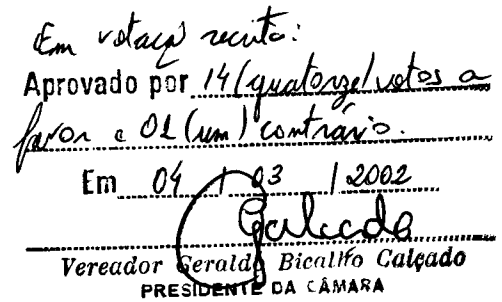 Em votação secreta:
Aprovado por 14 (quatorze) votos a
favor e 01 (um) contrário.
Em 04 / 03 / 2002
Calçado
Vereador Geraldo Bicalho Calçado
PRESIDENTE DA CÂMARA